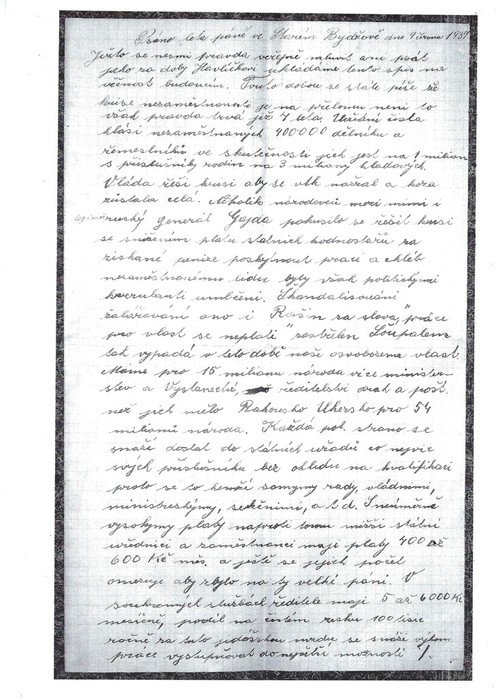 Psáno léta páně ve Starém Bydžově dne 9 června 1937
Ježto se nesmí pravda veřejně mluvit ani psát
jako za doby Havlíčkov ukládáme tento spis na
věčnost budoucím. Touto dobou se stále píše že
krise nezaměstnanosti je na přelomu není to
však pravda trvá již 7 let. Úřední čísla
hlásí nezaměstnaných 400000 dělníků a
řemeslníků ve skutečnosti jich jest na 1 milion
s příslušníky rodin na 3 miliony hladových.
Vláda řeší krisi aby se vlk nažral a koza
zůstala celá. Několik národovců mezi nimi i
legionářský generál Gajda pokusilo se řešit krisi
se snížením platu státních hodnostářů za
získané peníze poskytnout práci a chléb
nezaměstnanému lidu byli však politickými
umlčeni. Skandalisování
žalářování ano i Rašín za slova, "práce
pro vlast se neplatí" zastřelen Šoupalem
tak vypadá v této době naše osvobozená vlast.
Máme pro 15 milionů národa více minister-
stev a Vyslanectví, ředitelství drah a pošt.
než jich mělo Rakousko Uhersko pro 54
milionů národa. Každá pol. strana se
snaží dostat do státních úřadů co nejvíc
svých příslušníků bez ohledu na kvalifikaci
proto se to hemží samými rady, vládními,
ministerskými, sekčními, a t. d. S neúměrně
vysokými platy naproti tomu nižší státní
úředníci a zaměstnanci mají platy 400 až
600 Kč měs. a ještě se jejich počet
omezuje aby zbylo na ty velké pány. V
soukromých službách ředitelé mají 5 až 6000 Kč
měsíčně, podíl na čistém zisku 100 tisíc
ročně za tuto mzdu se snaží výkon
práce vystupňovat do největší možnosti /.